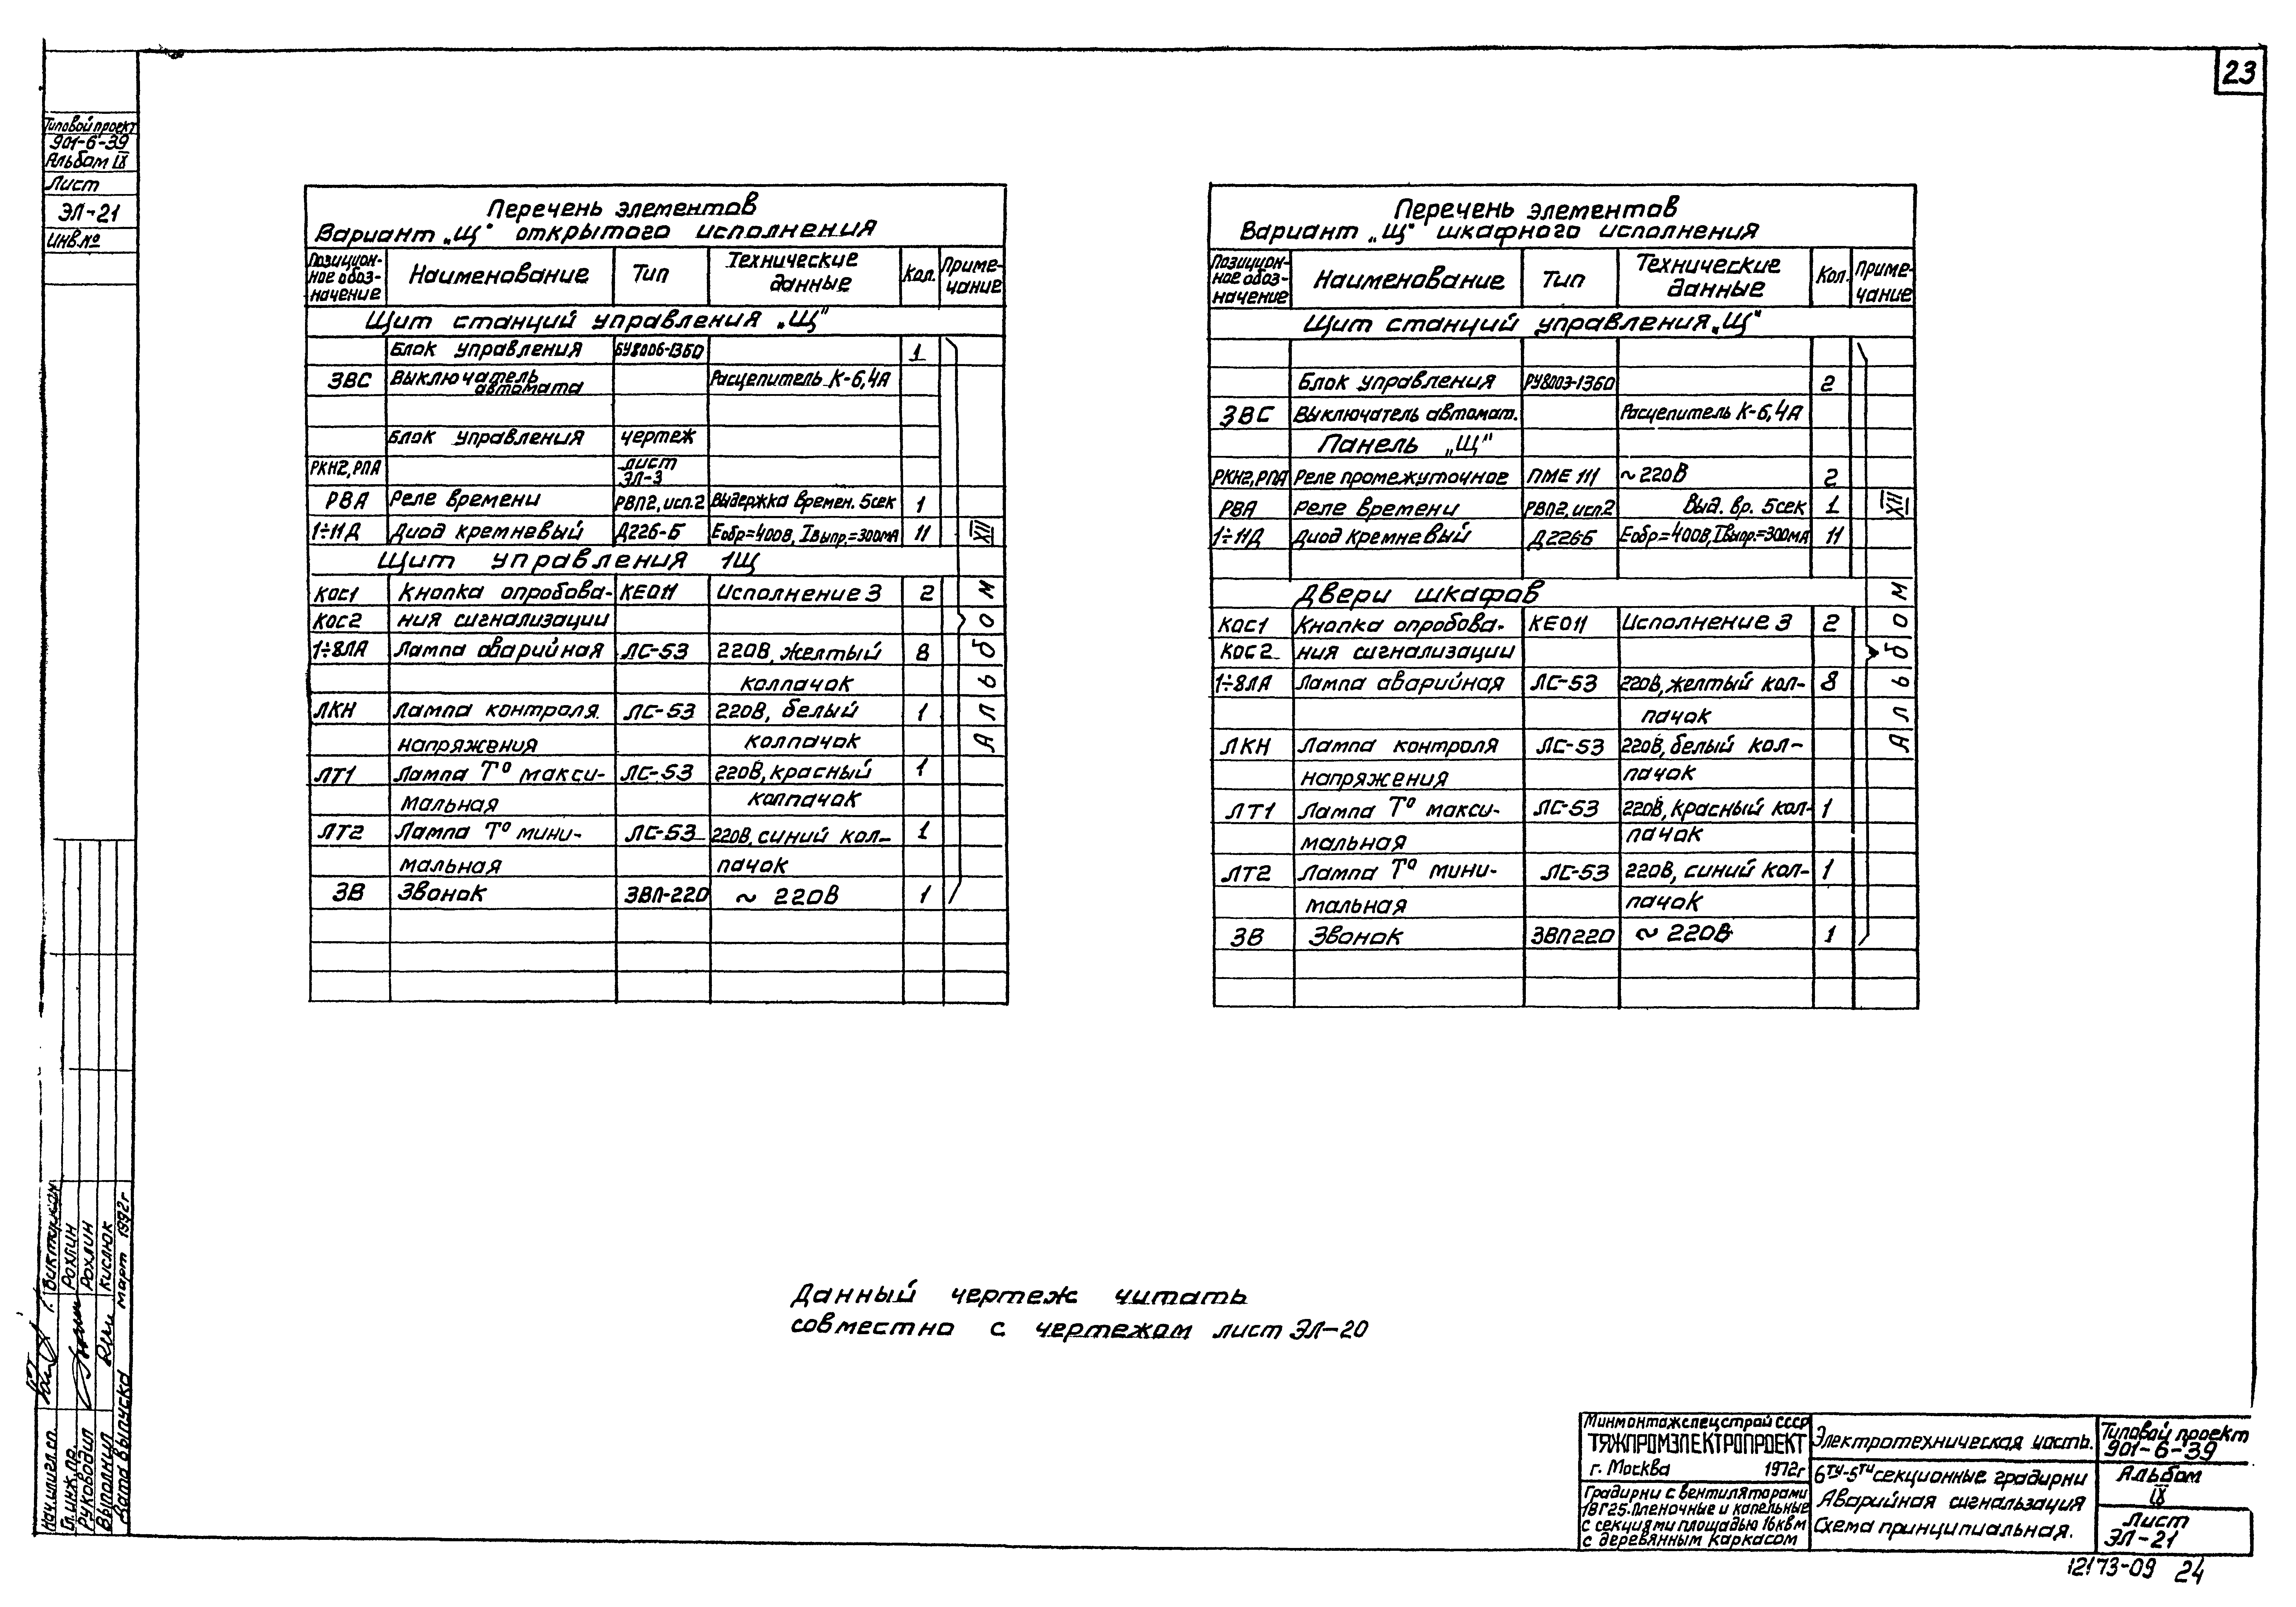 23
Типовой проект
901-6-39
Альбом IX
Лист
ЭЛ-21
Инв.№
Перечень элементов
Вариант „Щ" открытого исполнения
Позицион-
ное обоз-
начение
Наименование
Тип
Технические
данные
Кол.
Приме-
чание
Щит станций управления „Щ"
Блок управления БУ8006-13Б0 1
3ВС Выключатель
автомата
Расцепитель К-6,4А
Блок управления чертеж
РКН2, РПА лист
ЭЛ-3
РВА Реле времени РВП2, исп.2 Выдержка времен. 5сек 1
1÷11Д Диод кремневый Д226-Б Еобр=400В, Iвыпр.=300мА 11
Щит управления 1Щ
КОС1 Кнопка опробова- КЕ011 Исполнение 3 2
КОС2 ния сигнализации
1÷8ЛА Лампа аварийная ЛС-53 220В, желтый 8
колпачок
ЛКН Лампа контроля ЛС-53 220В, белый 1
напряжения колпачок
ЛТ1 Лампа Т° макси- ЛС-53 220В, красный 1
мальная колпачок
ЛТ2 Лампа Т° мини- ЛС-53 220В, синий кол- 1
мальная пачок
ЗВ Звонок ЗВП-220 ~ 220В 1
Альбом XII
Перечень элементов
Вариант „Щ" шкафного исполнения
Позицион-
ное обоз-
начение
Наименование
Тип
Технические
данные
Кол.
Приме-
чание
Щит станций управления „Щ"
Блок управления РУ8003-13Б0 2
3ВС Выключатель автомат. Расцепитель К-6,4А
Панель „Щ"
РКН2, РПА Реле промежуточное ПМЕ 111 ~220В 2
РВА Реле времени РВП2, исп.2 Выд. вр. 5сек 1
1÷11Д Диод кремневый Д226Б Еобр=400В, Iвыпр.=300мА 11
Двери шкафов
КОС1 Кнопка опробова- КЕ011 Исполнение 3 2
КОС2 ния сигнализации
1÷8ЛА Лампа аварийная ЛС-53 220В, желтый кол- 8
пачок
ЛКН Лампа контроля ЛС-53 220В, белый кол-
напряжения пачок
ЛТ1 Лампа Т° макси- ЛС-53 220В, красный кол- 1
мальная пачок
ЛТ2 Лампа Т° мини- ЛС-53 220В, синий кол- 1
мальная пачок
ЗВ Звонок ЗВП220 ~ 220В 1
Альбом XII
Данный чертеж читать
совместно с чертежом лист ЭЛ-20
Рохлин
Гл. инж. пр.
Руководил Рохлин
Выполнил Кислюк
Дата выпуска март 1992г
Минмонтажспецстрой СССР
ТЯЖПРОМЭЛЕКТРОПРОЕКТ
г. Москва 1972г
Градирни с вентиляторами
1ВГ25. Пленочные и капельные
с секциями площадью 16кв м
с деревянным каркасом
Электротехническая часть.
6ти-5ти секционные градирни
Аварийная сигнальзация
Схема принципиальная.
Типовой проект
901-6-39
Альбом
IX
Лист
ЭЛ-21
12173-09 24